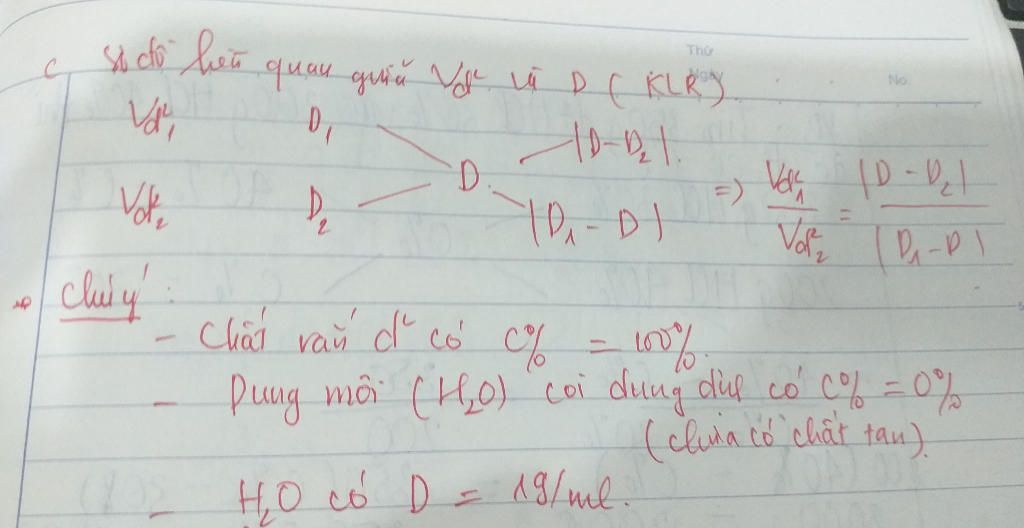 Thứ
Ngày
No.
c Sơ đồ liên quan giữa Vd² và D (KLR)
Vd²₁ D₁ |D-D₂|.
D
Vd²₂ D₂ |D₁ - D|
=> Vd²₁ / Vd²₂ = |D - D₂| / |D₁ - D|
Chú ý :
- Chất rắn d² có C% = 100%.
- Dung môi (H₂O) coi dung dịch có C% = 0%
(chưa có chất tan).
- H₂O có D = 1g/ml.